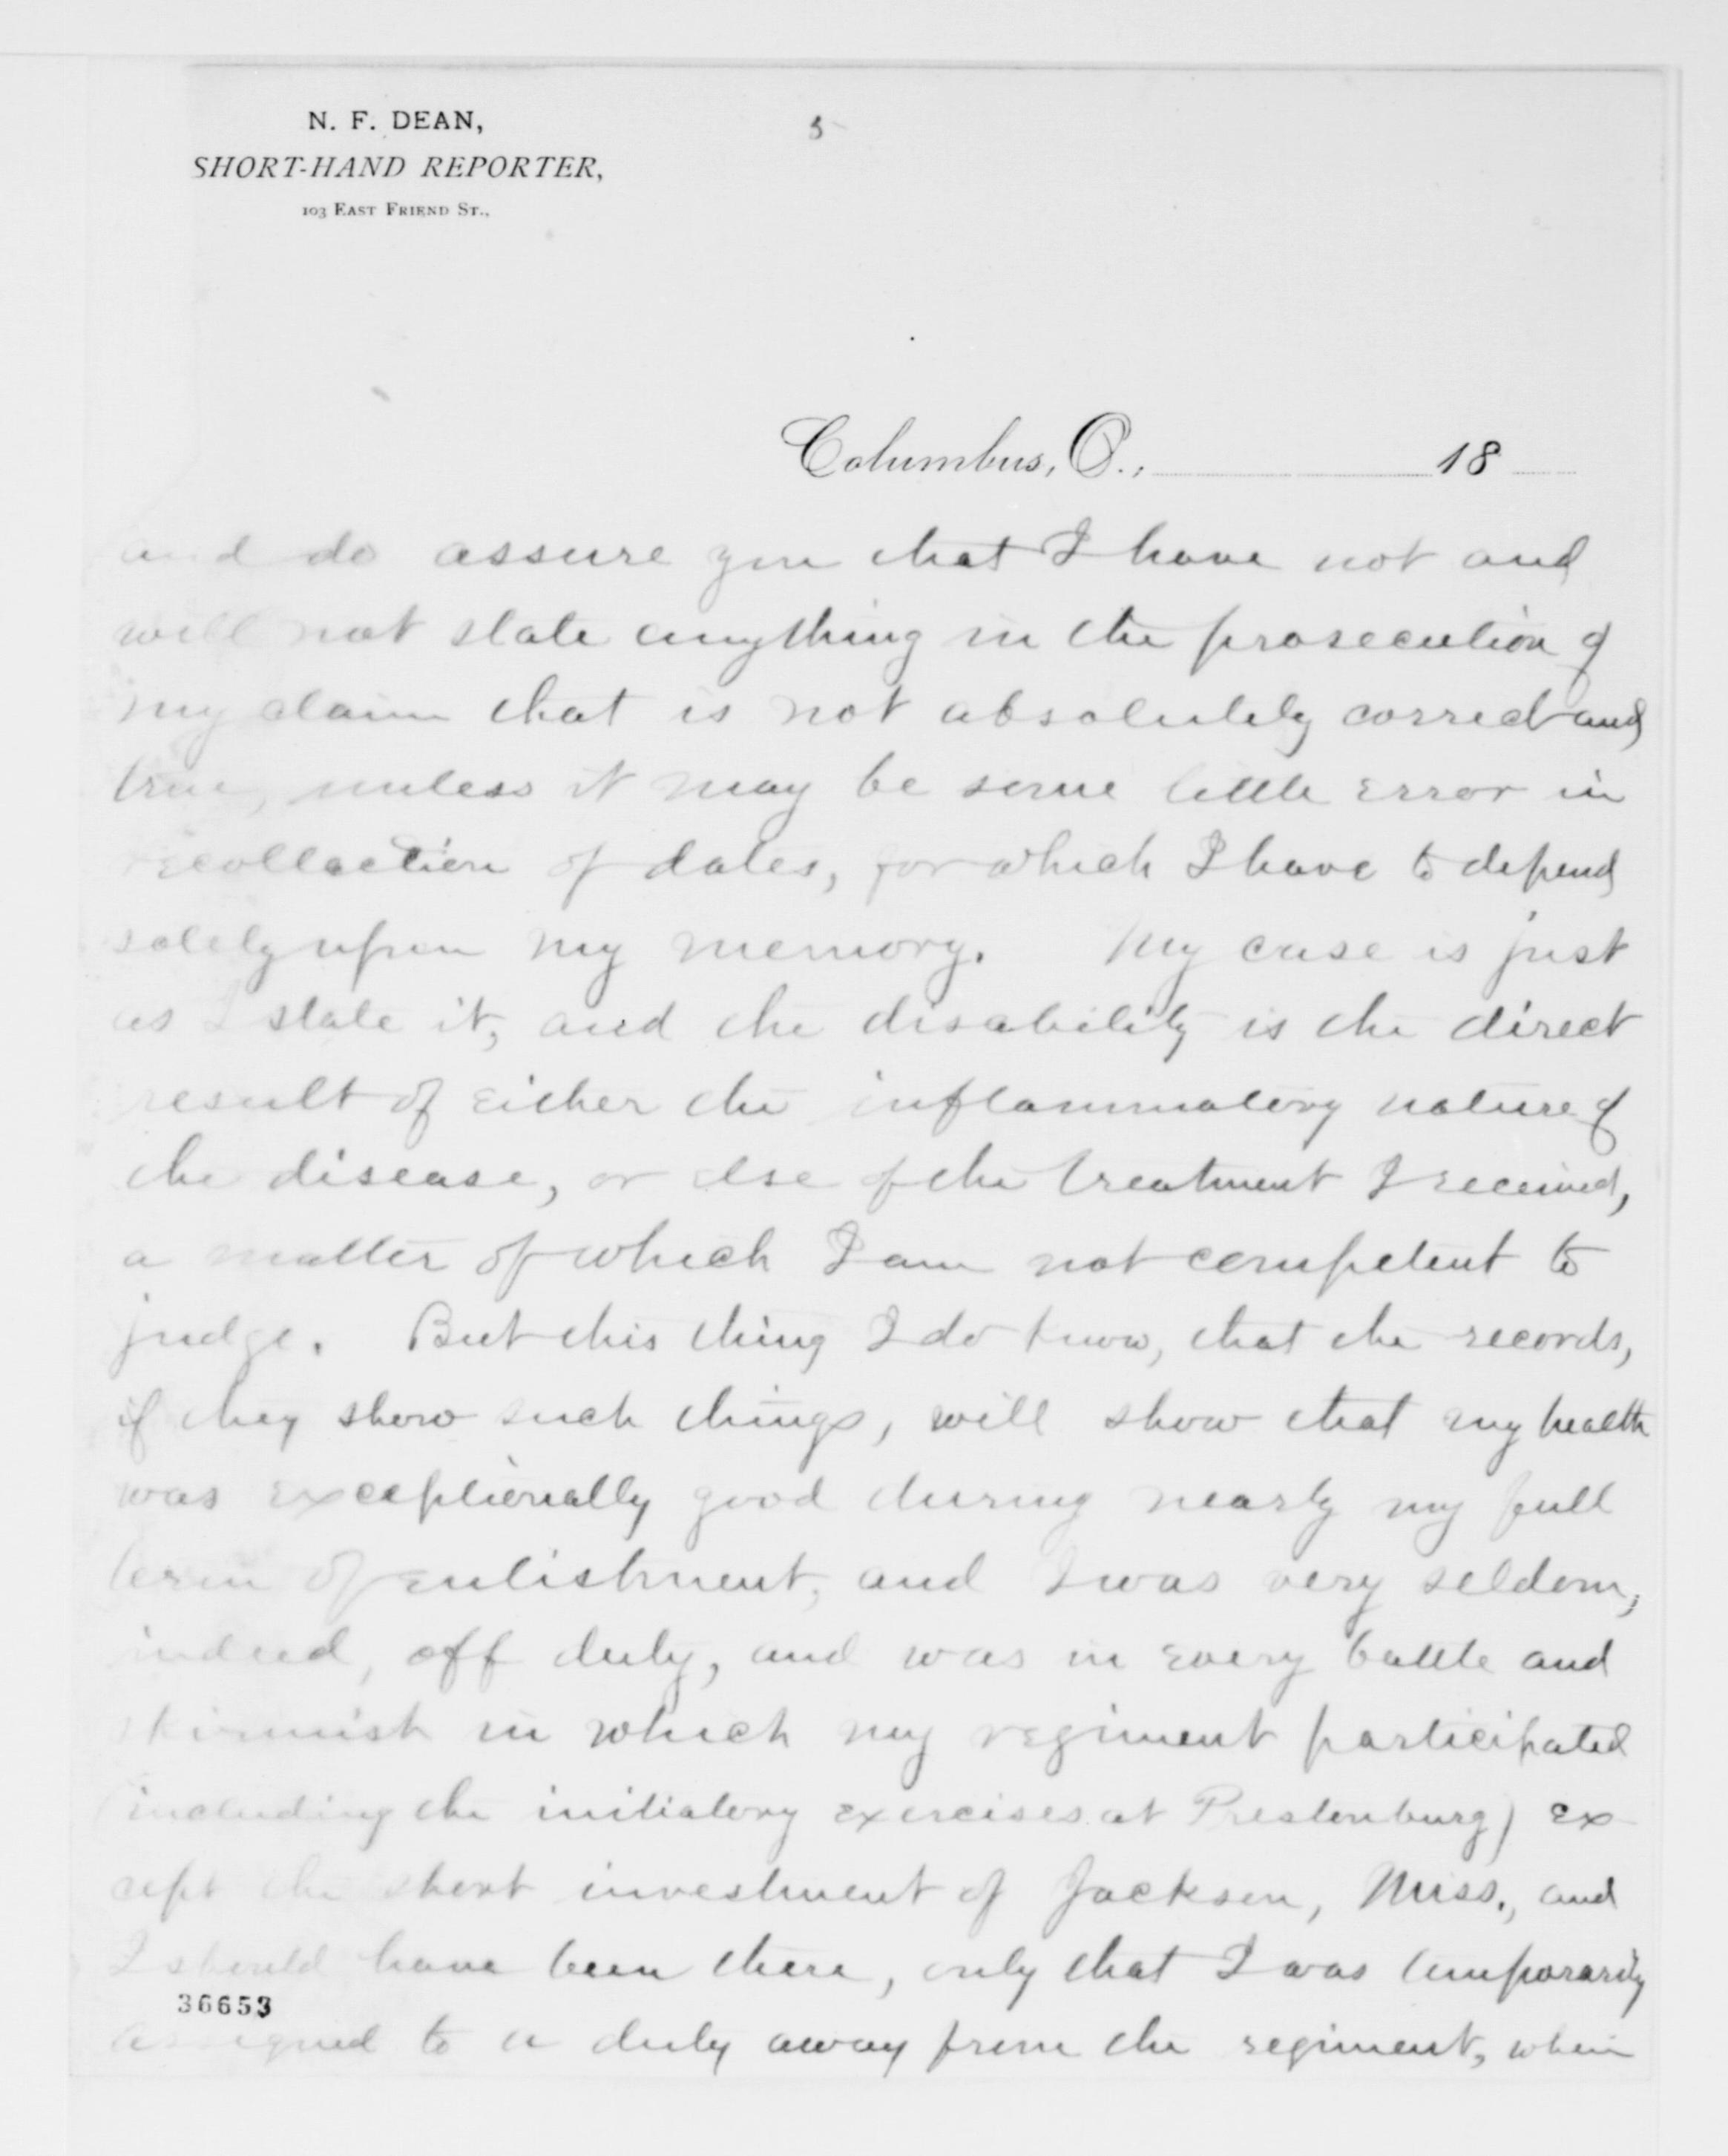 N. F. DEAN,
SHORT-HAND REPORTER,
103 EAST FRIEND ST.,
5
Columbus, O., 18
and do assure you that I have not and
will not state anything in the prosecution of
my claim that is not absolutely correct and
true, unless it may be some little error in
recollection of dates, for which I have to depend
solely upon my memory. My case is just
as I state it, and the disability is the direct
result of either the inflammatory nature of
the disease, or else of the treatment I received,
a matter of which I am not competent to
judge. But this thing I do know, that the records,
if they show such things, will show that my health
was exceptionally good during nearly my full
term of enlistment, and I was very seldom,
indeed, off duty, and was in every battle and
skirmish in which my regiment participated
(including the initiatory exercises at Prestonburg) ex
cept the short investment of Jackson, Miss., and
I should have been there, only that I was temporarily
36653
assigned to a duty away from the regiment, when